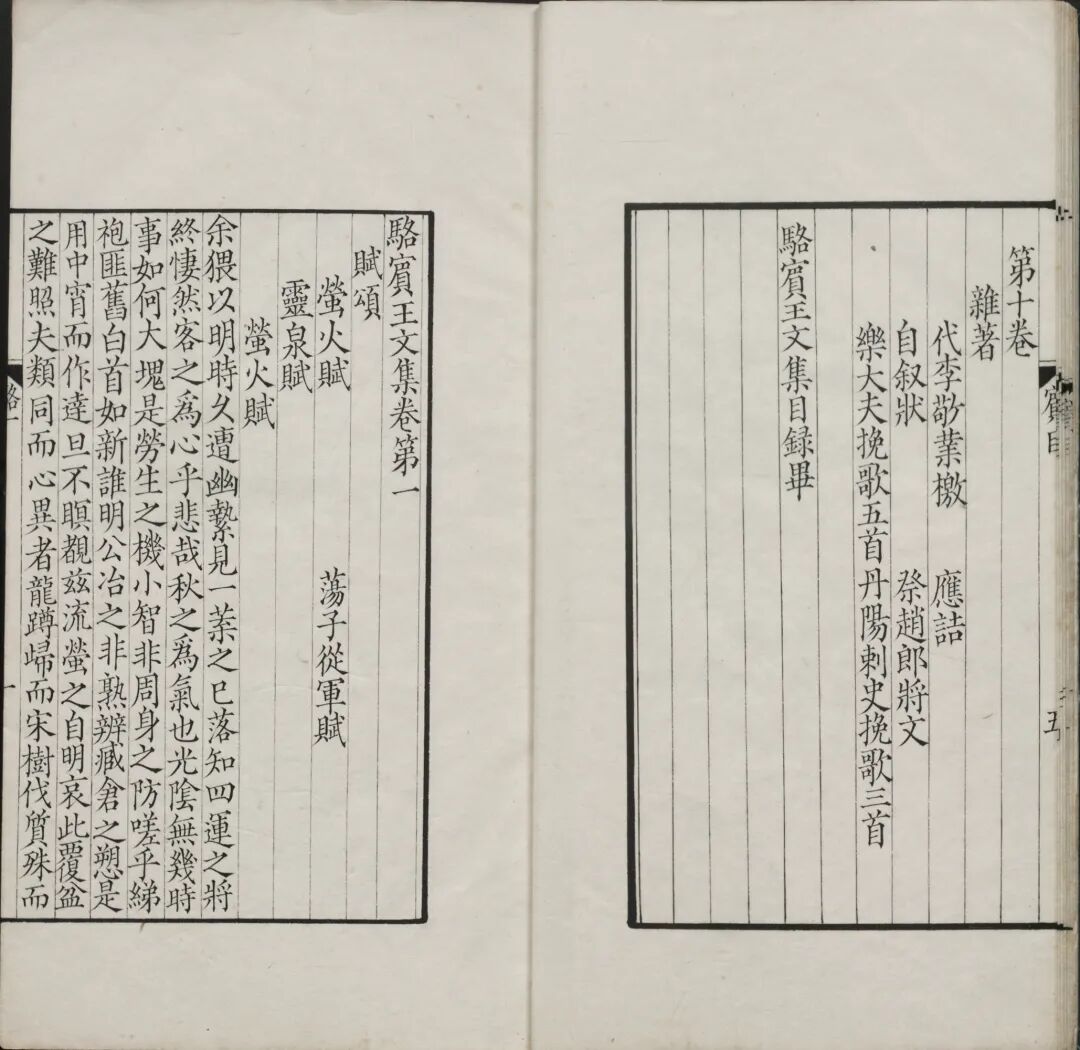 第十卷
雜著
代李敬業檄 應詰
自叙狀 祭趙郎將文
樂大夫挽歌五首 丹陽刺史挽歌三首
駱賓王文集目録畢
駱賓王文集卷第一
賦頌
螢火賦 蕩子從軍賦
靈泉賦
螢火賦
余猥以明時久遭幽縶見一葉之已落知四運之將
終悽然客之爲心乎悲哉秋之爲氣也光陰無幾時
事如何大塊是勞生之機小智非周身之防嗟乎綈
袍匪舊白首如新誰明公冶之非孰辨臧倉之愬是
用中宵而作達旦不瞑覩兹流螢之自明哀此覆盆
之難照夫類同而心異者龍蹲歸而宋樹伐質殊而